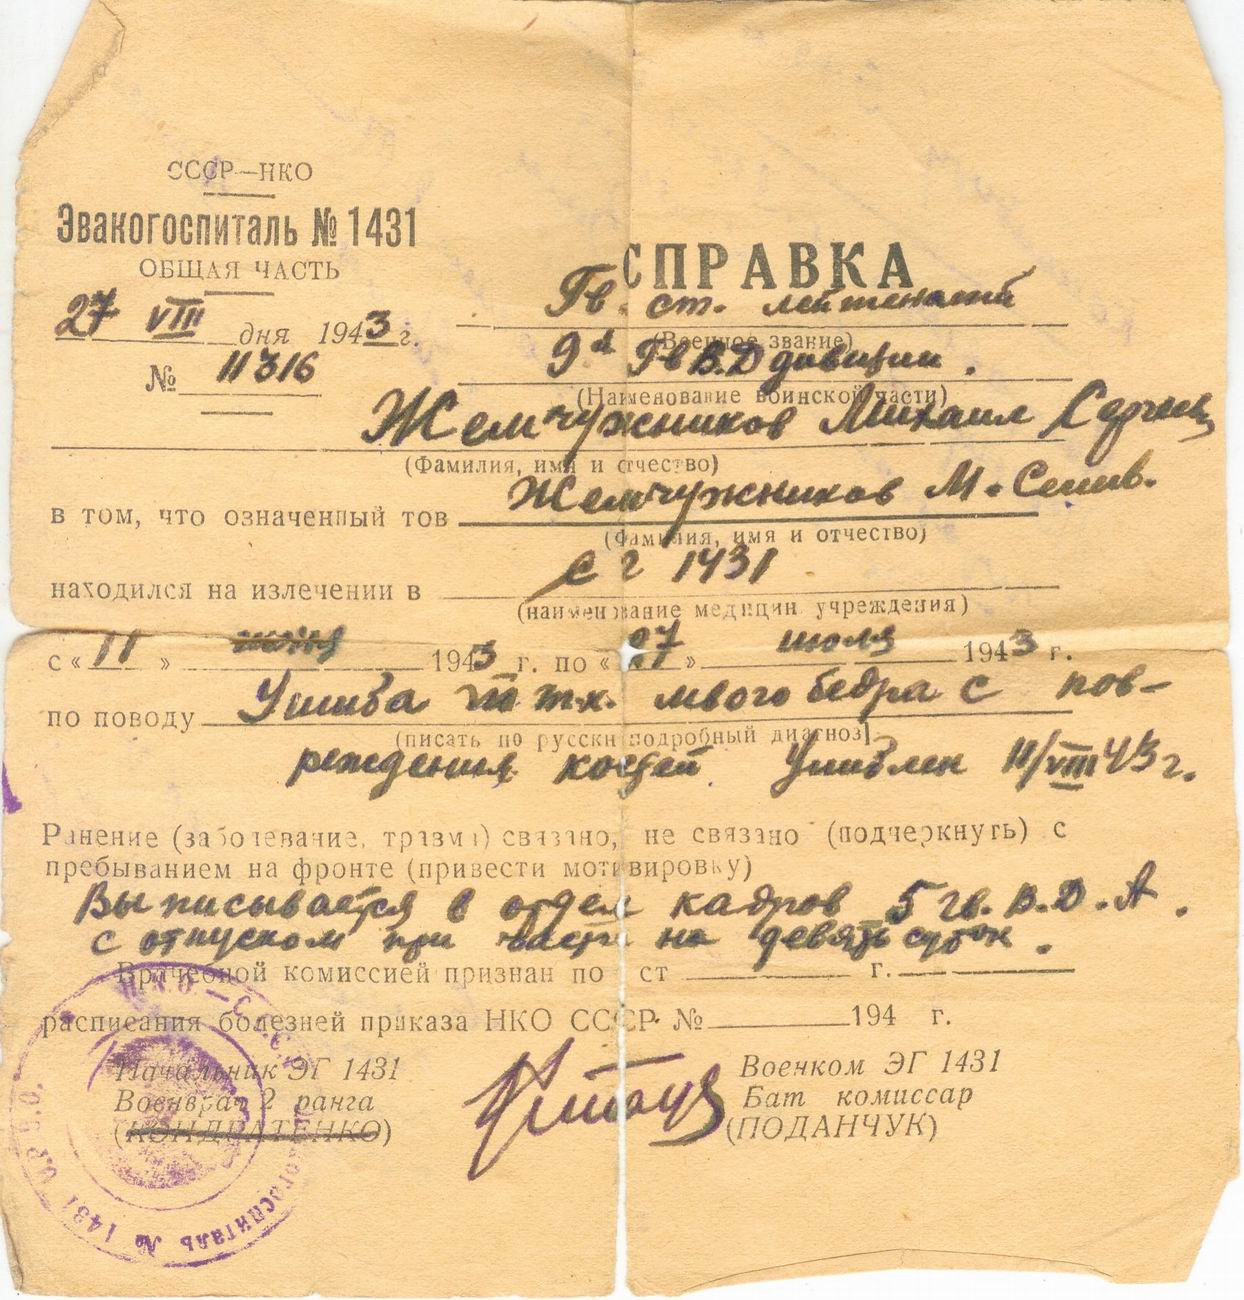 СССР—НКО
Эвакогоспиталь № 1431
ОБЩАЯ ЧАСТЬ
27 VIII дня 1943 г.
№ 11316
СПРАВКА
Гв. ст. лейтенант
(Военное звание)
9й Гв В.Д дивизии.
(Наименование воинской части)
Жемчужников Михаил
(Фамилия, имя и отчество)
в том, что означенный тов Жемчужников М.
(фамилия, имя и отчество)
находился на излечении в 1431
(наименование медицин учреждения)
с «11» 1943 г. по «27» июля 1943 г.
по поводу Ушиба левого бедра с пов-
(писать по русски подробный диагноз)
реждения костей. 11/VIII 43 г.
Ранение (заболевание, травма) связано, не связано (подчеркнуть) с
пребыванием на фронте (привести мотивировку)
Выписывается в отдел кадров 5 гв. В.Д.А.
с отпуском при части на девять суток.
Врачебной комиссией признан по ст г.
расписания болезней приказа НКО СССР № 194 г.
Начальник ЭГ 1431
Военврач 2 ранга
(КОНДРАТЕНКО)
Военком ЭГ 1431
Бат комиссар
(ПОДАНЧУК)
Эвакогоспиталь № 1431